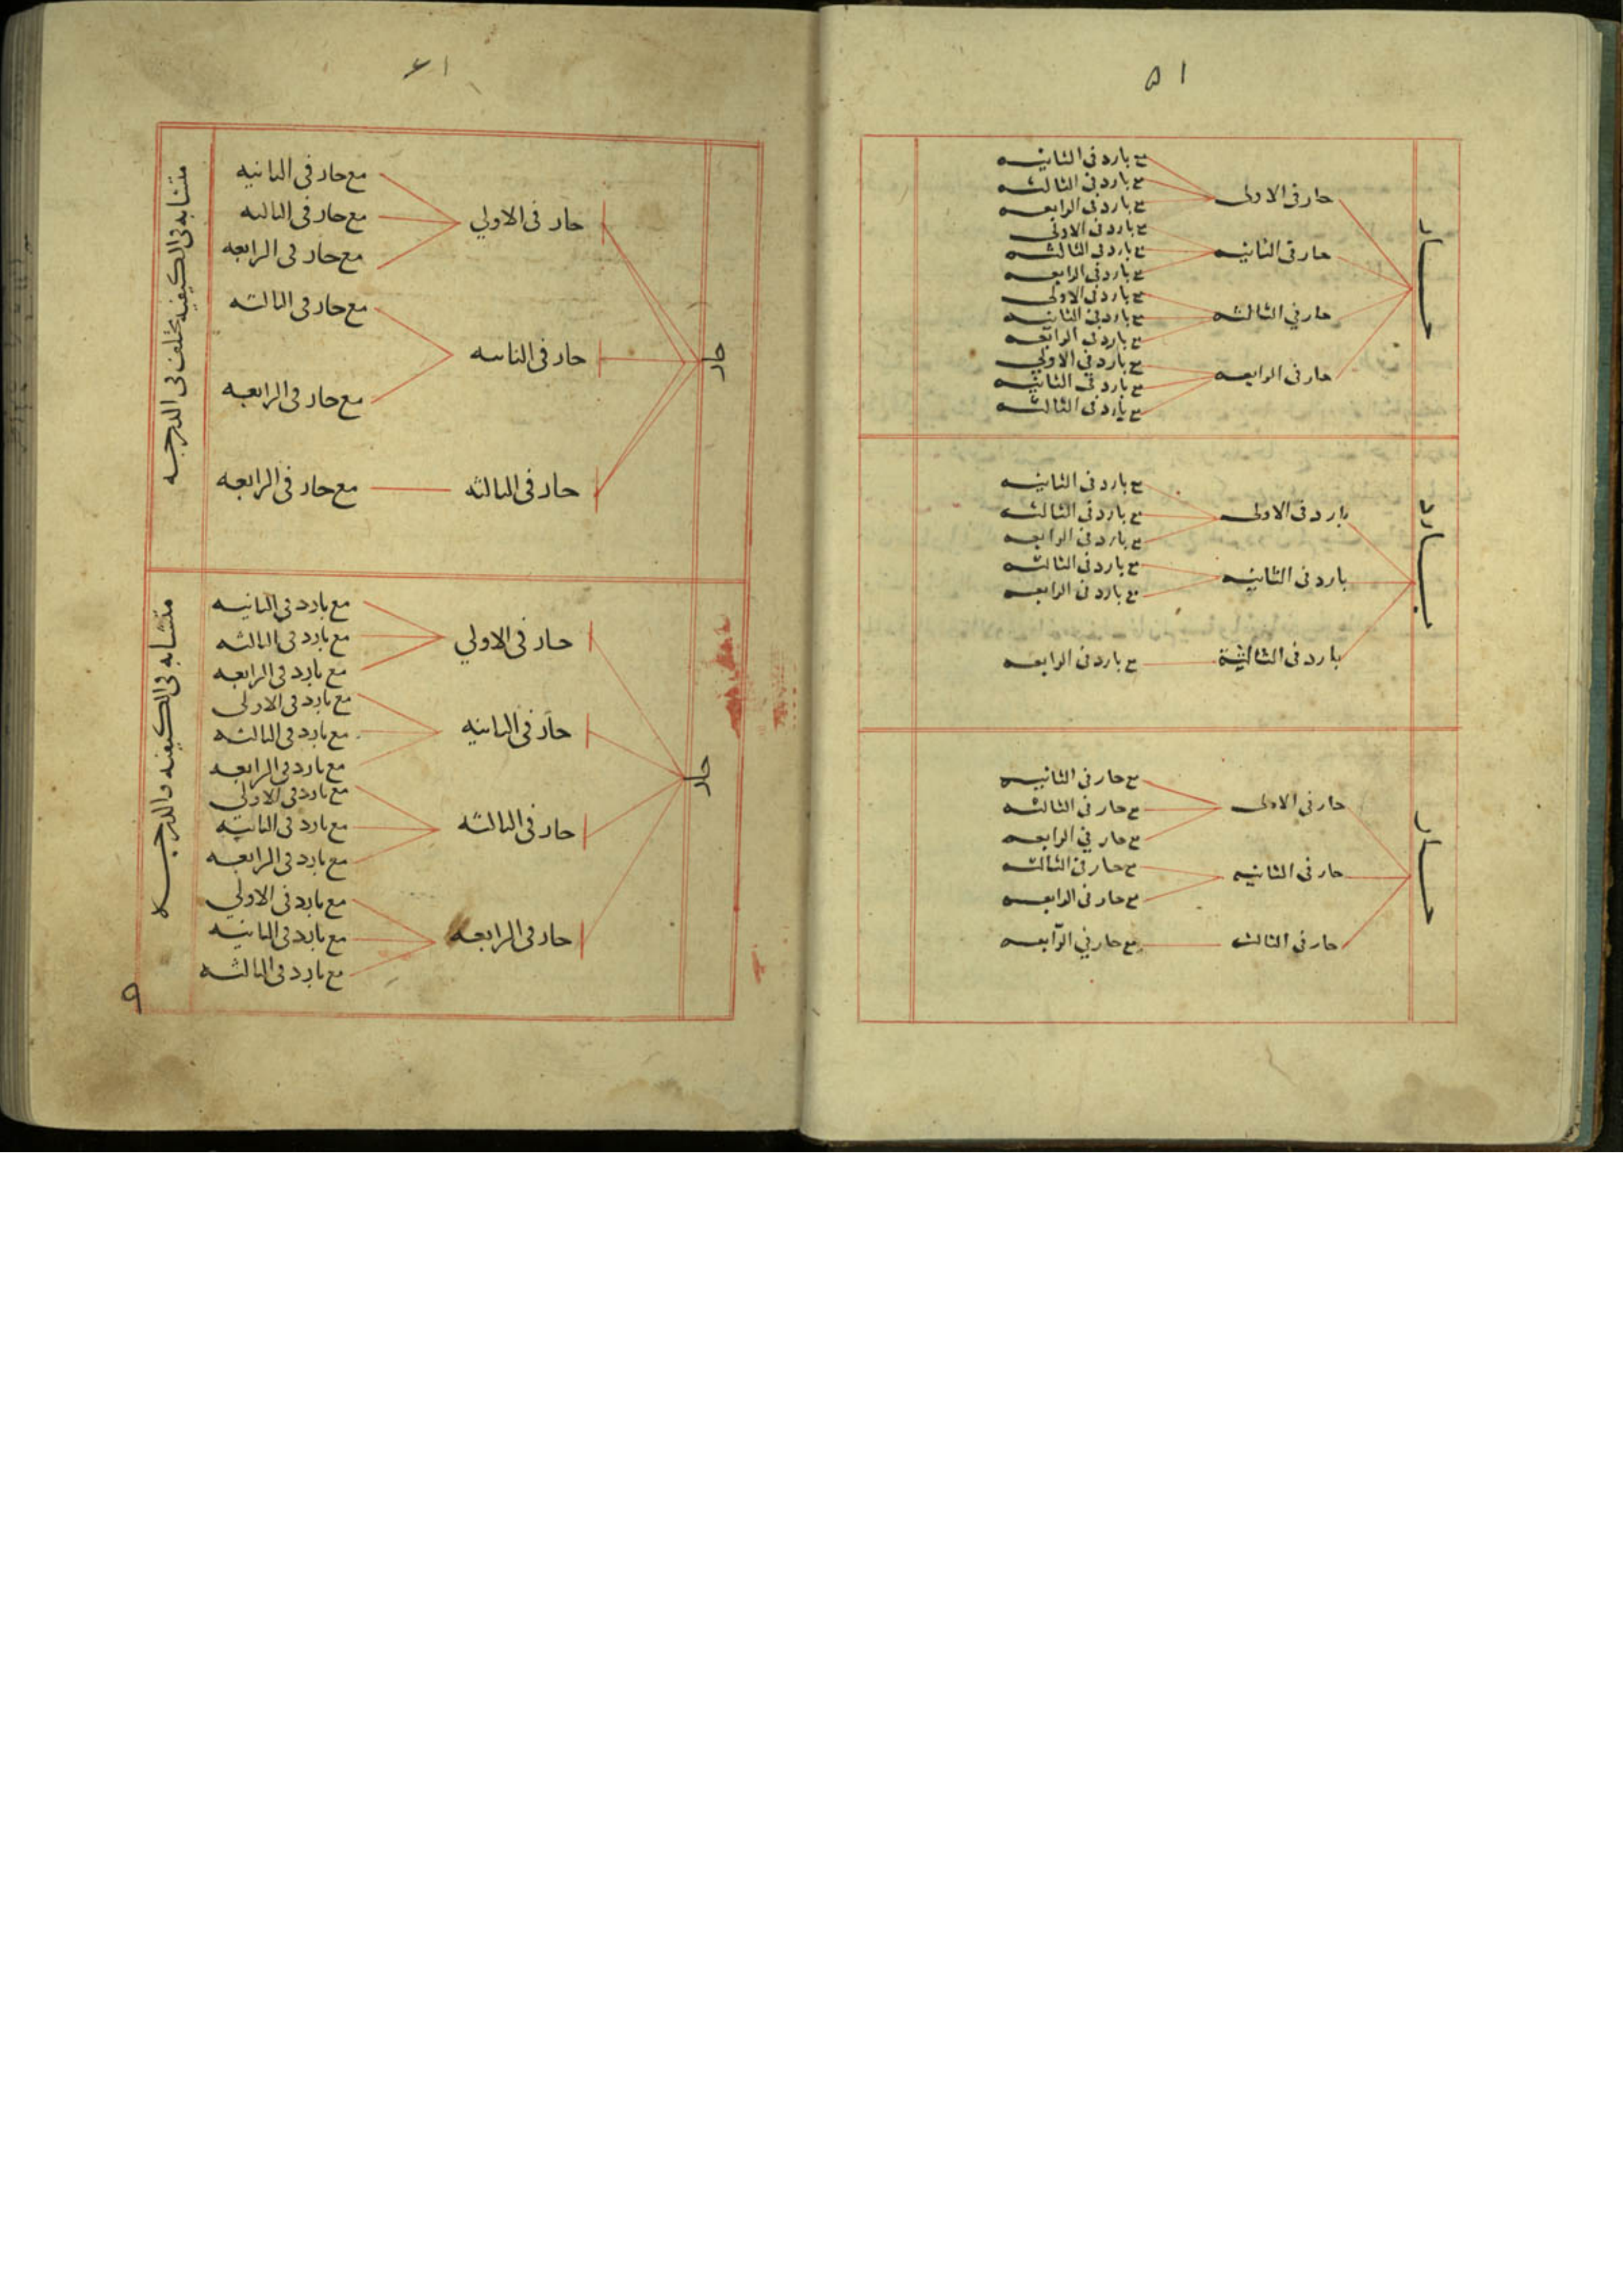 ۵۱
حار
حار فى الاولى
مع بارد فى الثانيه
مع بارد فى الثالثه
مع بارد فى الرابعه
حار فى الثانيه
مع بارد فى الاولى
مع بارد فى الثالثه
مع بارد فى الرابعه
حار في الثالثه
مع بارد فى الاولى
مع بارد فى الثانيه
مع بارد فى الرابعه
حار فى الرابعه
مع بارد في الاولي
مع بارد فى الثانيه
مع بارد فى الثالثه
بارد
بارد فى الاولى
مع بارد فى الثانيه
مع بارد فى الثالثه
مع بارد فى الرابعه
بارد فى الثانيه
مع بارد فى الثالثه
مع بارد فى الرابعه
بارد فى الثالثة
مع بارد فى الرابعه
حار
حار فى الاولى
مع حار فى الثانيه
مع حار فى الثالثه
مع حار في الرابعه
حار فى الثانيه
مع حار فى الثالثه
مع حار فى الرابعه
حار فى الثالث
مع حار في الرابعه
۶۱
حار
حار فى الاولي
مع حار فى الثانيه
مع حار فى الثالثه
مع حار فى الرابعه
حار فى الثانيه
مع حار فى الثالثه
مع حار فى الرابعه
حار فى الثالثه
مع حار فى الرابعه
متشابه فى الكيفيه مختلف فى الدرجه
حار
حار فى الاولي
مع بارد فى الثانيه
مع بارد فى الثالثه
مع بارد فى الرابعه
حار فى الثانيه
مع بارد فى الاولى
مع بارد فى الثالثه
مع بارد فى الرابعه
حار فى الثالثه
مع بارد فى الاولى
مع بارد فى الثانيه
مع بارد فى الرابعه
حار فى الرابعه
مع بارد فى الاولي
مع بارد فى الثانيه
مع بارد فى الثالثه
متشابه فى الكيفيه والدرجه